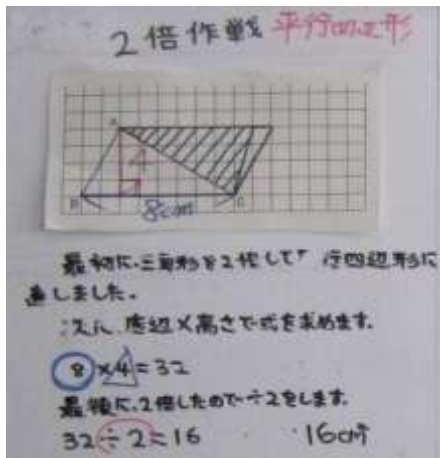 ２倍作戦 平行四辺形
A
4
B 8cm C
最初に、三角形を２倍して 行四辺形に
直しました。
次に、底辺×高さで式を求めます。
8×4=32
最後に、2倍したので÷2をします。
32÷2=16 16cm²